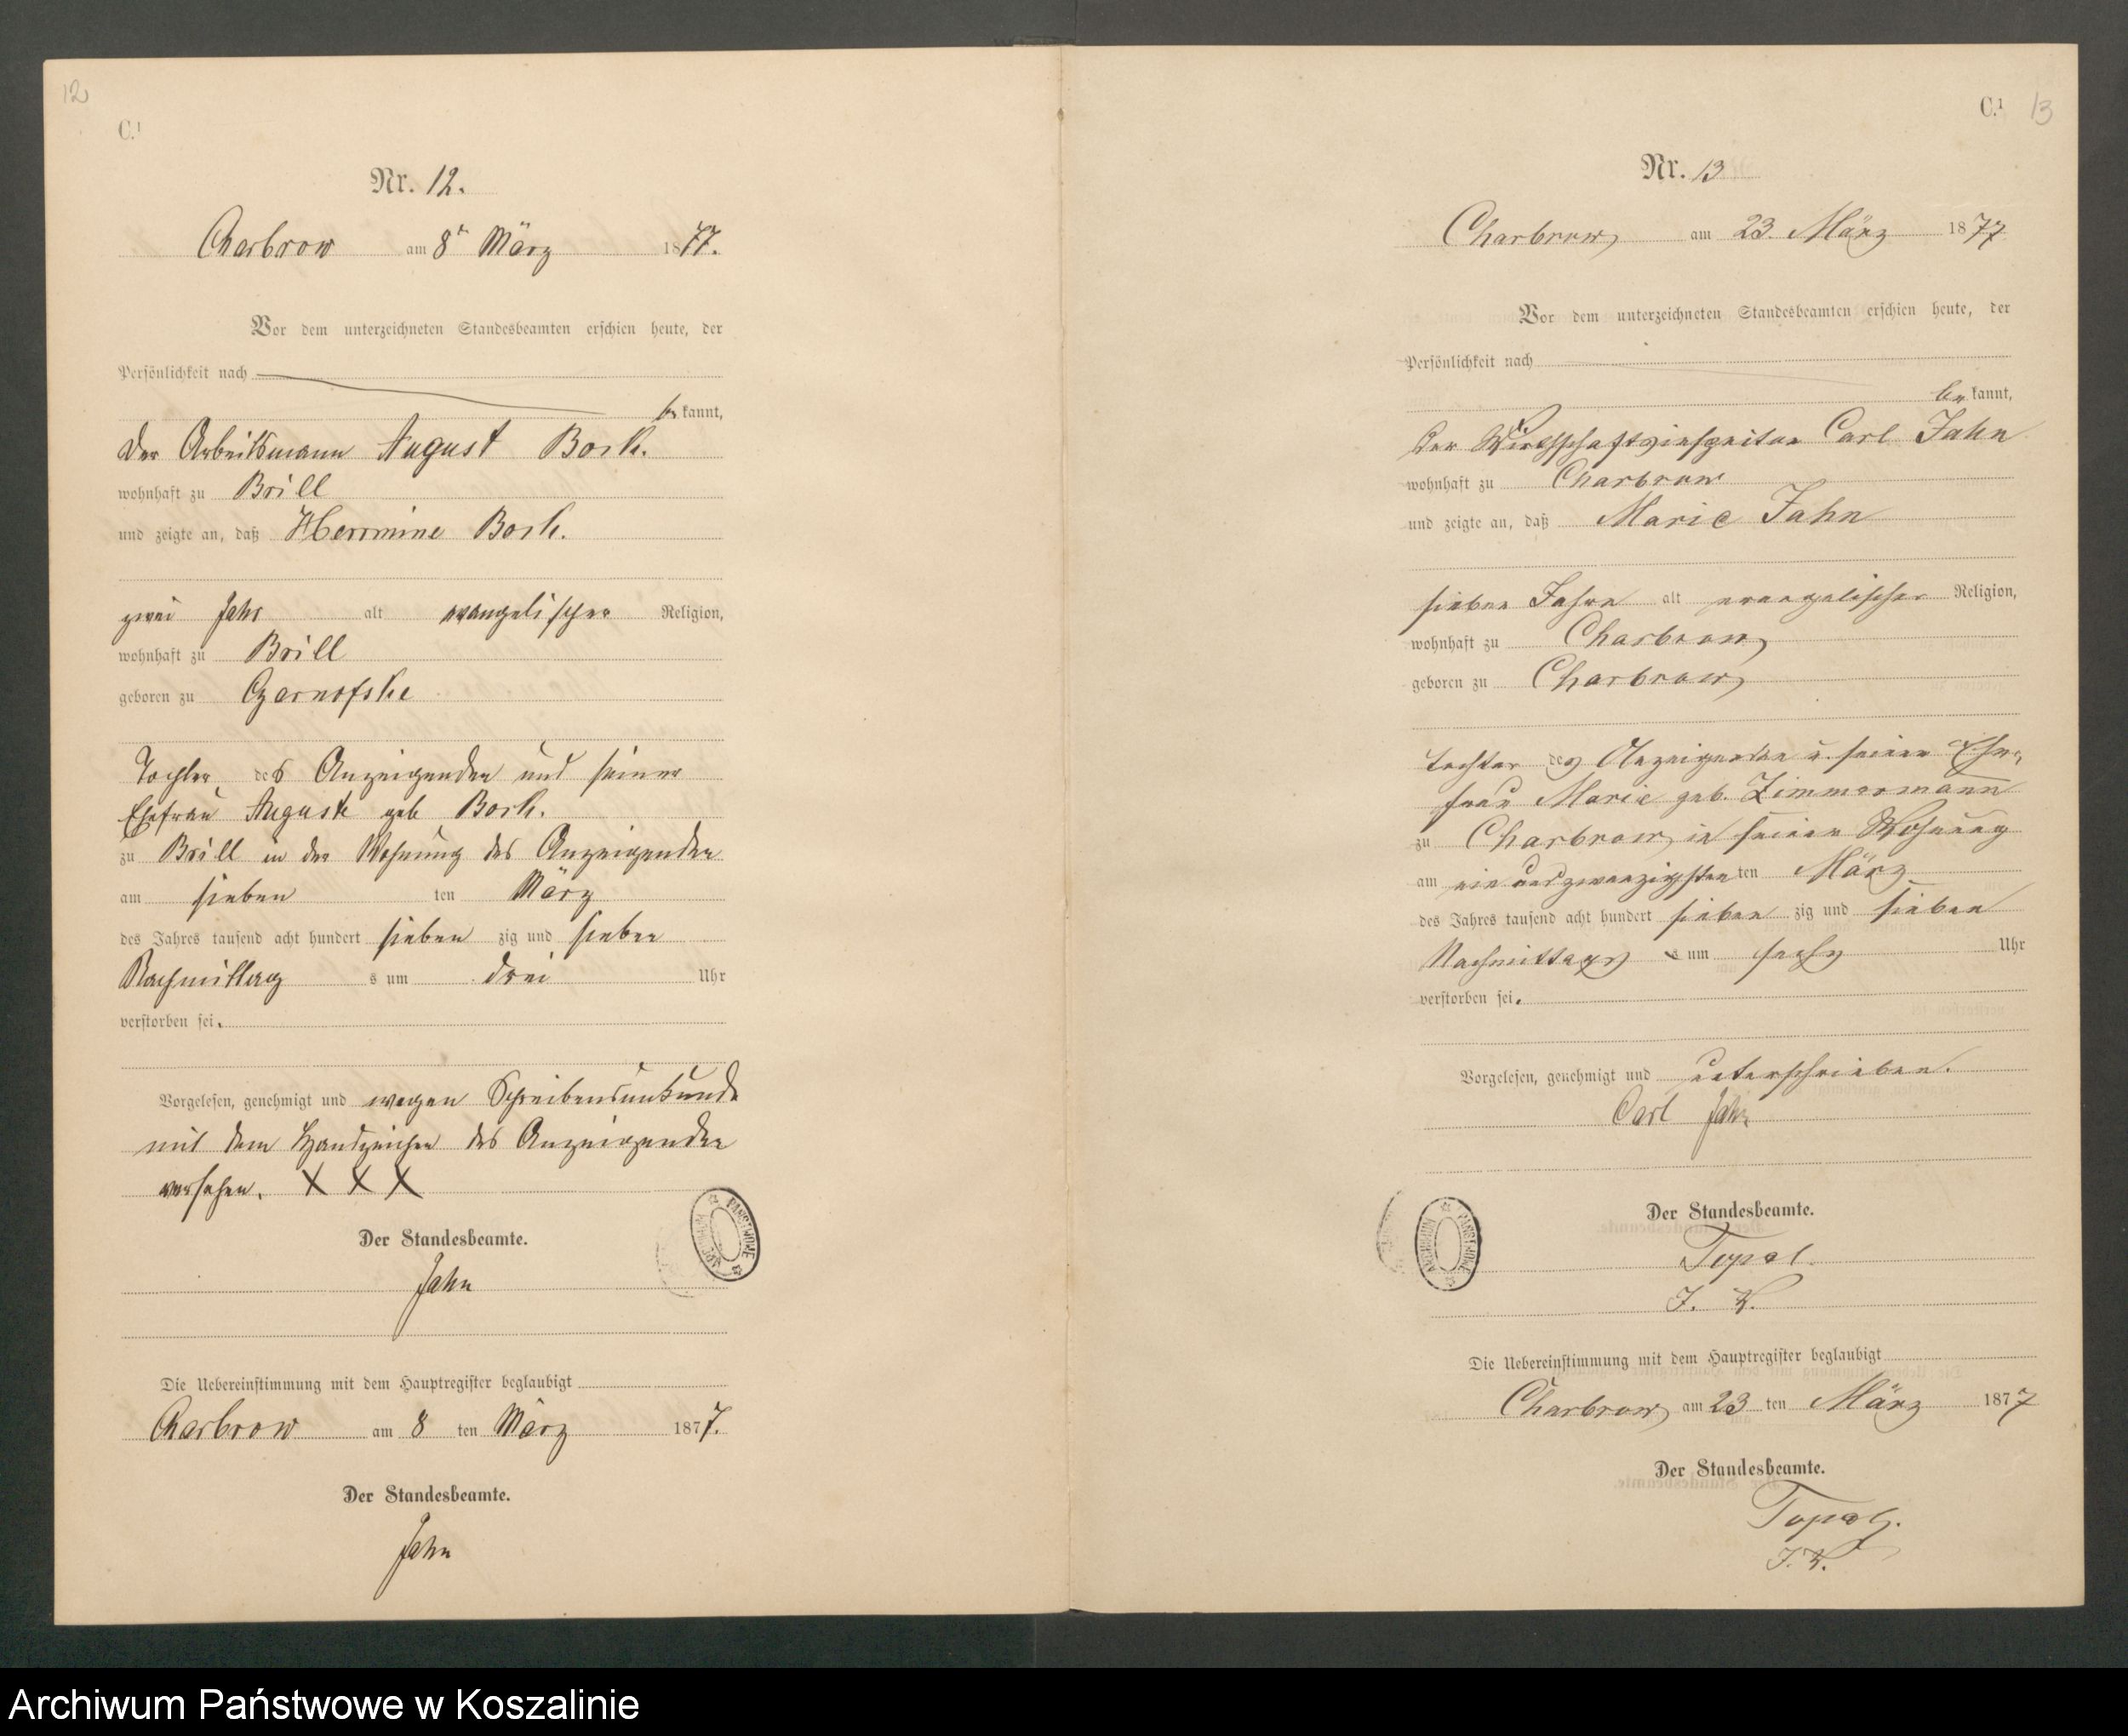 12
C.¹
Nr. 12.
Charbrow am 8ᵗ März 1877.
Vor dem unterzeichneten Standesbeamten erschien heute, der
Persönlichkeit nach
be kannt,
der Arbeitsmann August Bork.
wohnhaft zu Brill
und zeigte an, daß Herrmine Bork.
zwei Jahr alt evangelischer Religion,
wohnhaft zu Brill
geboren zu Czarnofske
Tochter des Anzeigenden und seiner
Ehefrau Auguste geb Bork.
zu Brill in der Wohnung des Anzeigenden
am sieben ten März
des Jahres tausend acht hundert sieben zig und sieben
Nachmittag s um drei Uhr
verstorben sei.
Vorgelesen, genehmigt und wegen Schreibensunkunde
mit dem Handzeichen des Anzeigenden
versehen. X X X
Der Standesbeamte.
Jahn
ARCHIWUM PAŃSTWOWE
Die Uebereinstimmung mit dem Hauptregister beglaubigt
Charbrow am 8 ten März 1877.
Der Standesbeamte.
Jahn
C.¹ 13
Nr. 13
Charbrow am 23. März 1877
Vor dem unterzeichneten Standesbeamten erschien heute, der
Persönlichkeit nach
be kannt,
der Wirthschaftsinspektor Carl Jahn
wohnhaft zu Charbrow
und zeigte an, daß Marie Jahn
sieben Jahre alt evangelischer Religion,
wohnhaft zu Charbrow
geboren zu Charbrow
Tochter des Anzeigenden u. seiner Ehe-
frau Marie geb. Zimmermann
zu Charbrow in seiner Wohnung
am einundzwanzigsten ten März
des Jahres tausend acht hundert sieben zig und sieben
Nachmittags s um sechs Uhr
verstorben sei.
Vorgelesen, genehmigt und unterschrieben.
Carl Jahn
Der Standesbeamte.
J. V.
ARCHIWUM PAŃSTWOWE
Die Uebereinstimmung mit dem Hauptregister beglaubigt
Charbrow am 23 ten März 1877
Der Standesbeamte.
J. V.
Archiwum Państwowe w Koszalinie